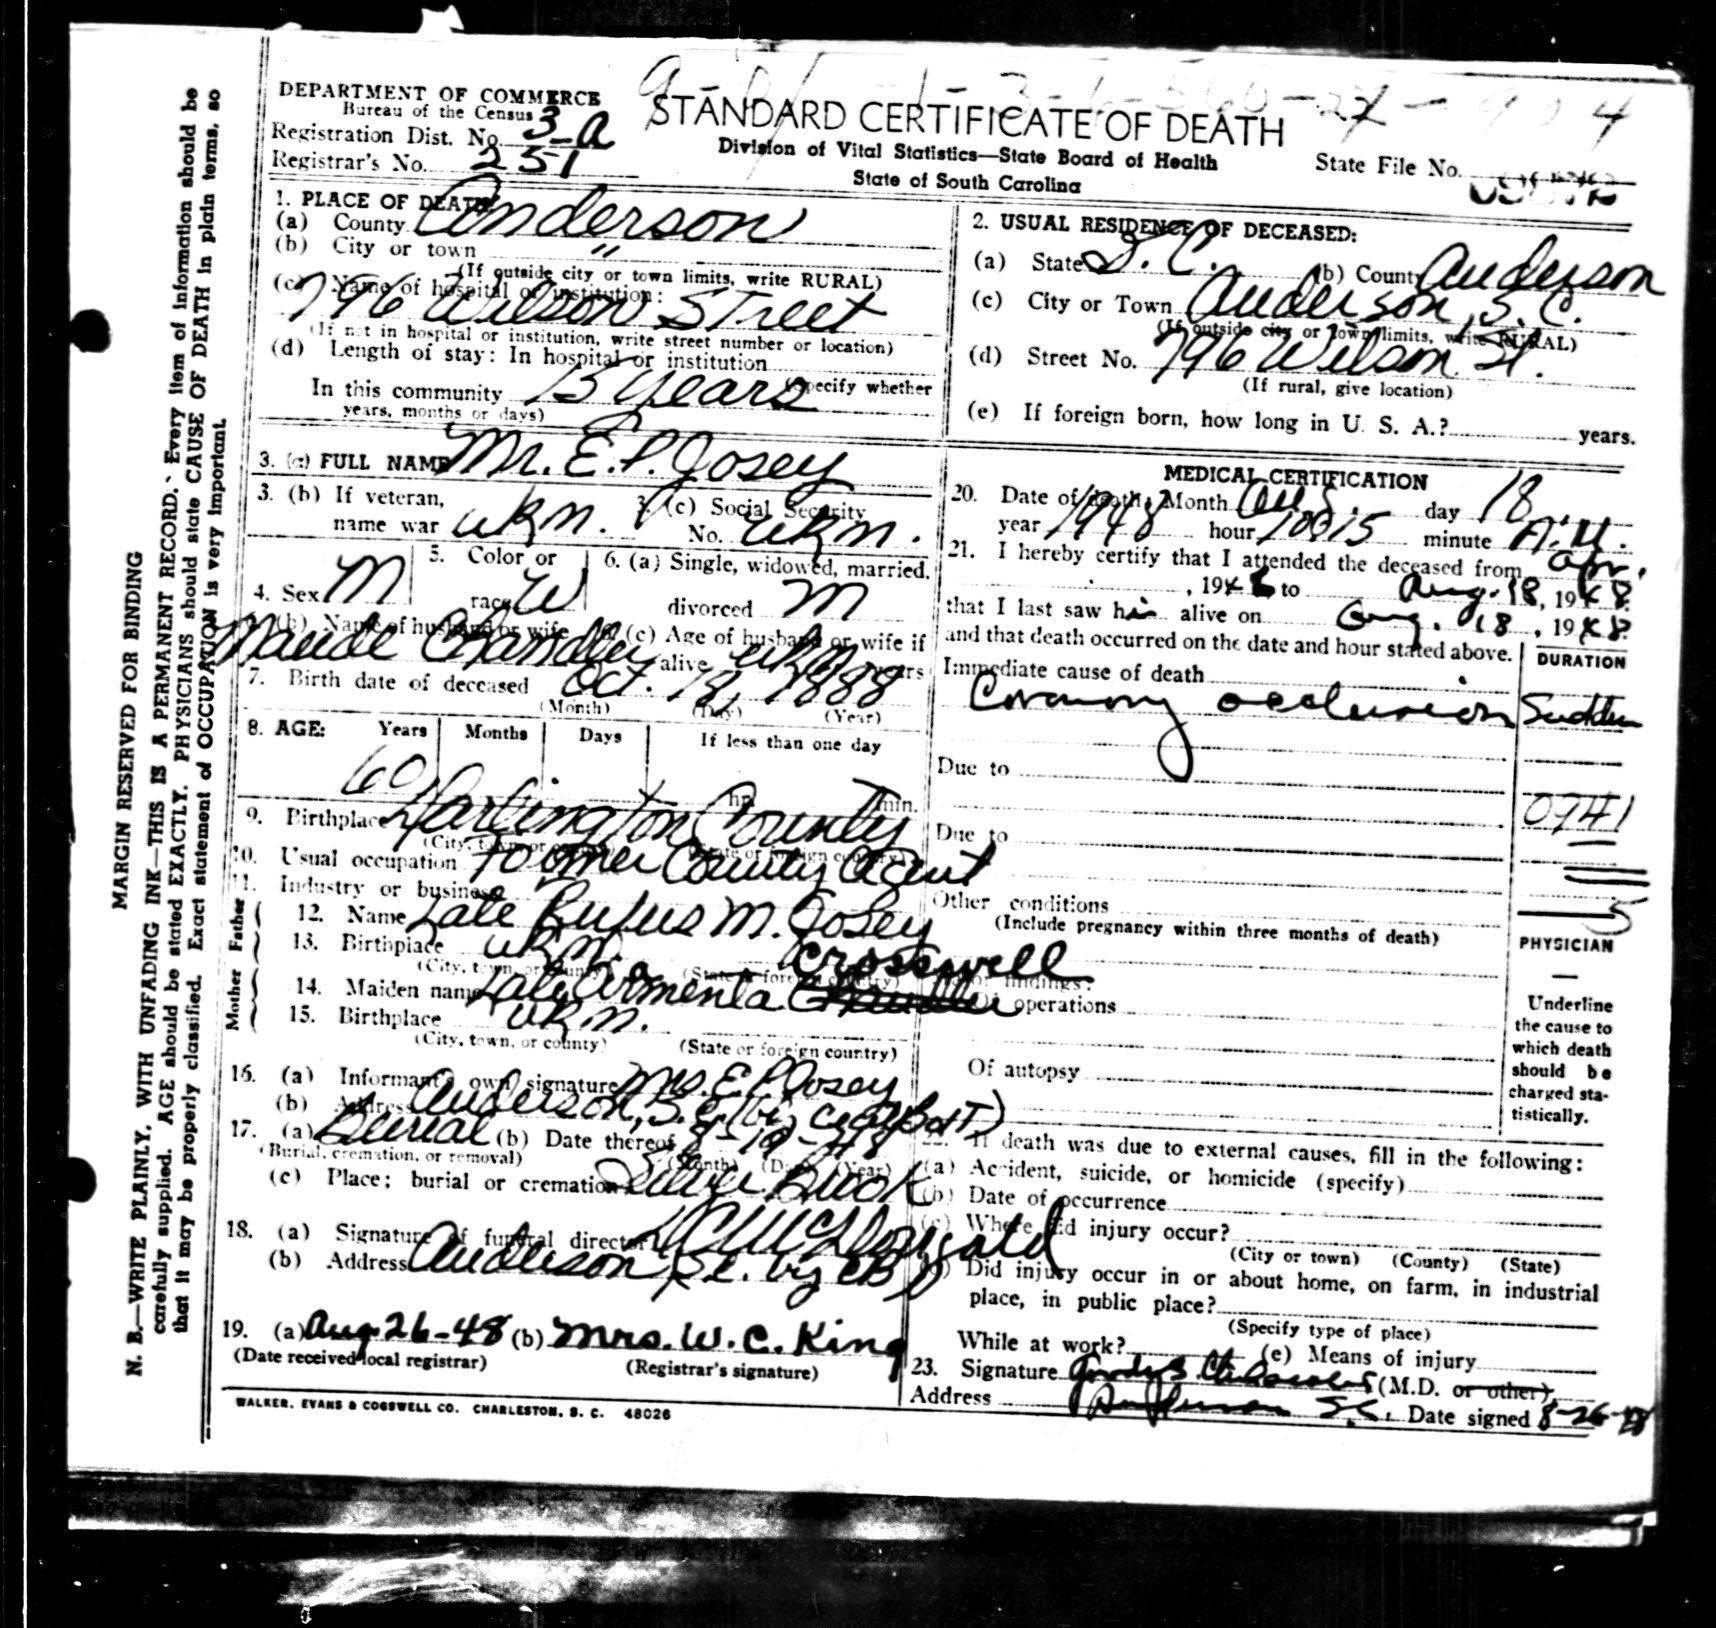 DEPARTMENT OF COMMERCE
Bureau of the Census
Registration Dist. No. 3-a
Registrar's No. 251
STANDARD CERTIFICATE OF DEATH
Division of Vital Statistics—State Board of Health
State of South Carolina
State File No.
MARGIN RESERVED FOR BINDING
N. B.—WRITE PLAINLY, WITH UNFADING INK—THIS IS A PERMANENT RECORD. Every item of information should be
carefully supplied. AGE should be stated EXACTLY. PHYSICIANS should state CAUSE OF DEATH in plain terms, so
that it may be properly classified. Exact statement of OCCUPATION is very important.
1. PLACE OF DEATH
(a) County Anderson
(b) City or town "
(If outside city or town limits, write RURAL)
(c) Name of hospital or institution:
796 Wilson Street
(If not in hospital or institution, write street number or location)
(d) Length of stay: In hospital or institution
In this community 15 years (Specify whether
years, months or days)
2. USUAL RESIDENCE OF DECEASED:
(a) State S. C. (b) County Anderson
(c) City or Town Anderson, S. C.
(If outside city or town limits, write RURAL)
(d) Street No. 796 Wilson St.
(If rural, give location)
(e) If foreign born, how long in U. S. A.? years.
3. (a) FULL NAME Mr. E. P. Josey
3. (b) If veteran,
name war ukn.
3. (c) Social Security
No. ukn.
4. Sex M
5. Color or
race W
6. (a) Single, widowed, married,
divorced M
6. (b) Name of husband or wife
Maude Chandler
6. (c) Age of husband or wife if
alive ukn years
7. Birth date of deceased Oct. 18, 1888
(Month) (Day) (Year)
8. AGE: Years Months Days If less than one day
60 hr. min.
9. Birthplace Darlington County
(City, town or county) (State or foreign country)
10. Usual occupation Former County Agent
11. Industry or business
Father
12. Name Late Rufus M. Josey
13. Birthplace ukn.
(City, town, or county) (State or foreign country)
Mother
Crosswell
14. Maiden name Late Armenta Chandler
15. Birthplace ukn.
(City, town, or county) (State or foreign country)
16. (a) Informant's own signature Mrs. E. P. Josey
(b) Address Anderson, S. C.
17. (a) Burial (b) Date thereof 8-19-48
(Burial, cremation, or removal) (Month) (Day) (Year)
(c) Place; burial or cremation Silver Brook
18. (a) Signature of funeral director McDougald
(b) Address Anderson, S.C. by CB
19. (a) Aug. 26-48 (b) Mrs. W. C. King
(Date received local registrar) (Registrar's signature)
MEDICAL CERTIFICATION
20. Date of death: Month Aug. day 18
year 1948 hour 10:15 minute A.M.
21. I hereby certify that I attended the deceased from Apr.
, 1946 to Aug. 18, 1948
that I last saw him alive on Aug. 18, 1948
and that death occurred on the date and hour stated above.
DURATION
Immediate cause of death
Coronary occlusion Sudden
Due to
0941
Due to
Other conditions
(Include pregnancy within three months of death)
5
PHYSICIAN
Major findings:
Of operations
Of autopsy
Underline
the cause to
which death
should be
charged sta-
tistically.
22. If death was due to external causes, fill in the following:
(a) Accident, suicide, or homicide (specify)
(b) Date of occurrence
(c) Where did injury occur?
(City or town) (County) (State)
(d) Did injury occur in or about home, on farm, in industrial
place, in public place?
(Specify type of place)
While at work? (e) Means of injury
23. Signature (M.D. or other)
Address Anderson S.C. Date signed 8-26-48
WALKER, EVANS & COGSWELL CO. CHARLESTON, S. C. 48026